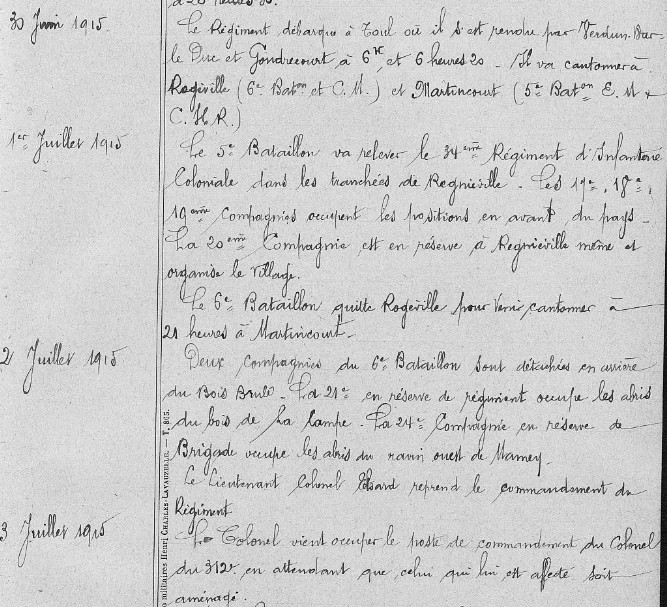 à 20 heures 30.
30 Juin 1915. Le Régiment débarque à Toul où il s'est rendu par Verdun. Bar-
le Duc et Gondrecourt, à 6H, et 6 heures 20 - Il va cantonner à
Rogéville (6e Baton et C. M.) et Martincourt (5e Baton E. M +
C. H R.)
1er Juillet 1915 Le 5e Bataillon va relever le 34eme Régiment d'Infanterie
Coloniale dans les tranchées de Regniéville - Les 17e, 18e,
19eme Compagnies occupent les positions en avant du pays -
La 20eme Compagnie est en réserve à Regniéville même et
organise le village.
Le 6e Bataillon quitte Rogéville pour venir cantonner à
21 heures à Martincourt -
2 Juillet 1915 Deux Compagnies du 6e Bataillon sont détachées en arrière
du Bois Brulé - La 21e en réserve de régiment occupe les abris
du bois de La Lampe - La 24e Compagnie en réserve de
Brigade occupe les abris du ravin ouest de Mamey -
Le Lieutenant Colonel reprend le commandement du
Régiment
3 Juillet 1915 Le Colonel vient occuper le poste de commandement du Colonel
du 312e en attendant que celui qui lui est affecté soit
aménagé.
militaires Henri CHARLES-LAVAUZELLE. — T. 805.